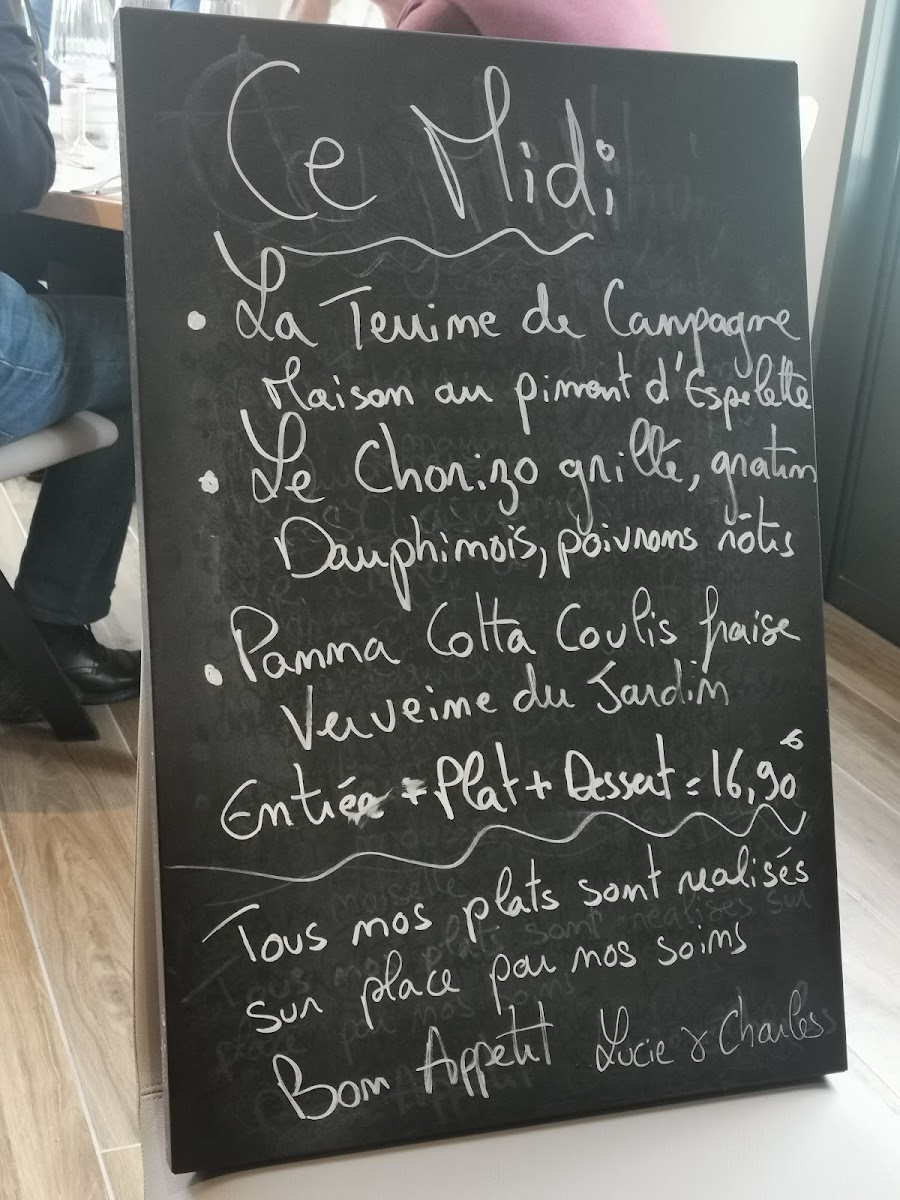 Ce Midi
• La Terrine de Campagne
Maison au piment d'Espelette
• Le Chorizo grillé, gratin
Dauphinois, poivrons rôtis
• Panna Cotta Coulis fraise
Verveine du Jardin
Entrée + Plat + Dessert = 16,90€
Tous nos plats sont realisés
sur place par nos soins
Bon Appetit Lucie & Charles